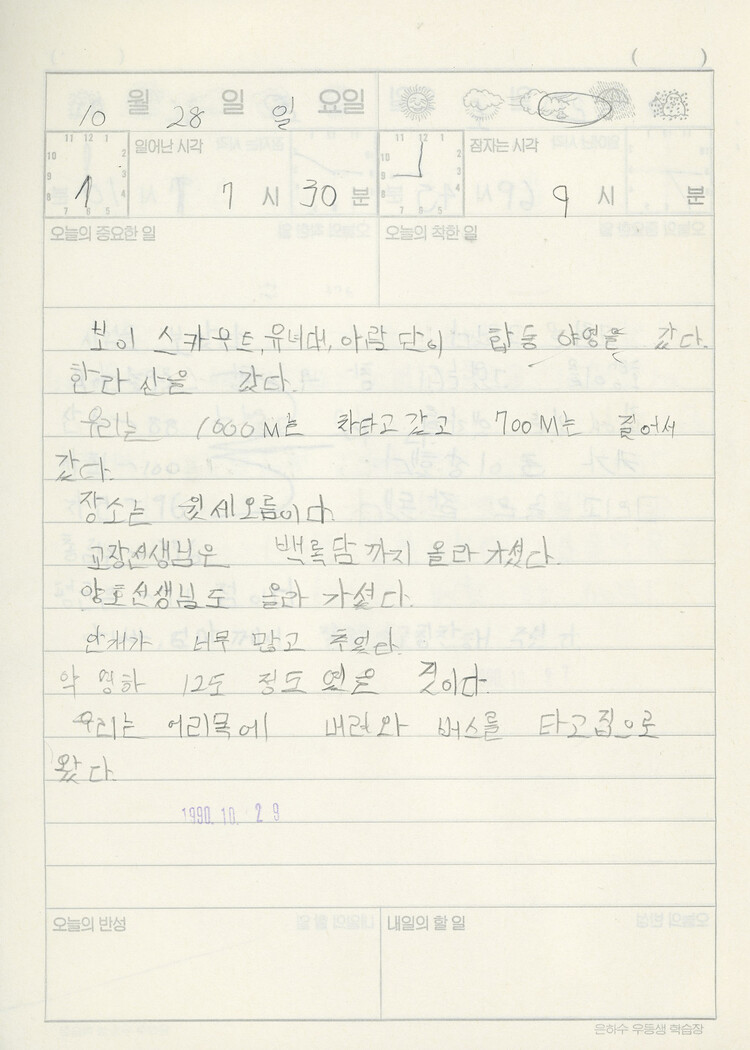 ( )
10 월 28 일 일 요일
11 12 1 10 2 9 3 8 4 7 6 5
일어난 시각 7 시 30 분
11 12 1 10 2 9 3 8 4 7 6 5
잠자는 시각 9 시 분
오늘의 중요한 일
오늘의 착한 일
보이 스카우트, 유녀대, 아람단이 합동 야영을 갔다.
한라산을 갔다.
우리는 1000M는 차타고 갔고 700M는 걸어서
갔다.
장소는 윗세오름이다.
교장선생님은 백록담까지 올라 가셨다.
양호선생님도 올라 가셨다.
안개가 너무 많고 추웠다.
약 영하 12도 정도 였을 것이다.
우리는 어리목에 내려와 버스를 타고 집으로
왔다.
1990. 10. 29
오늘의 반성
내일의 할 일
은하수 우등생 학습장